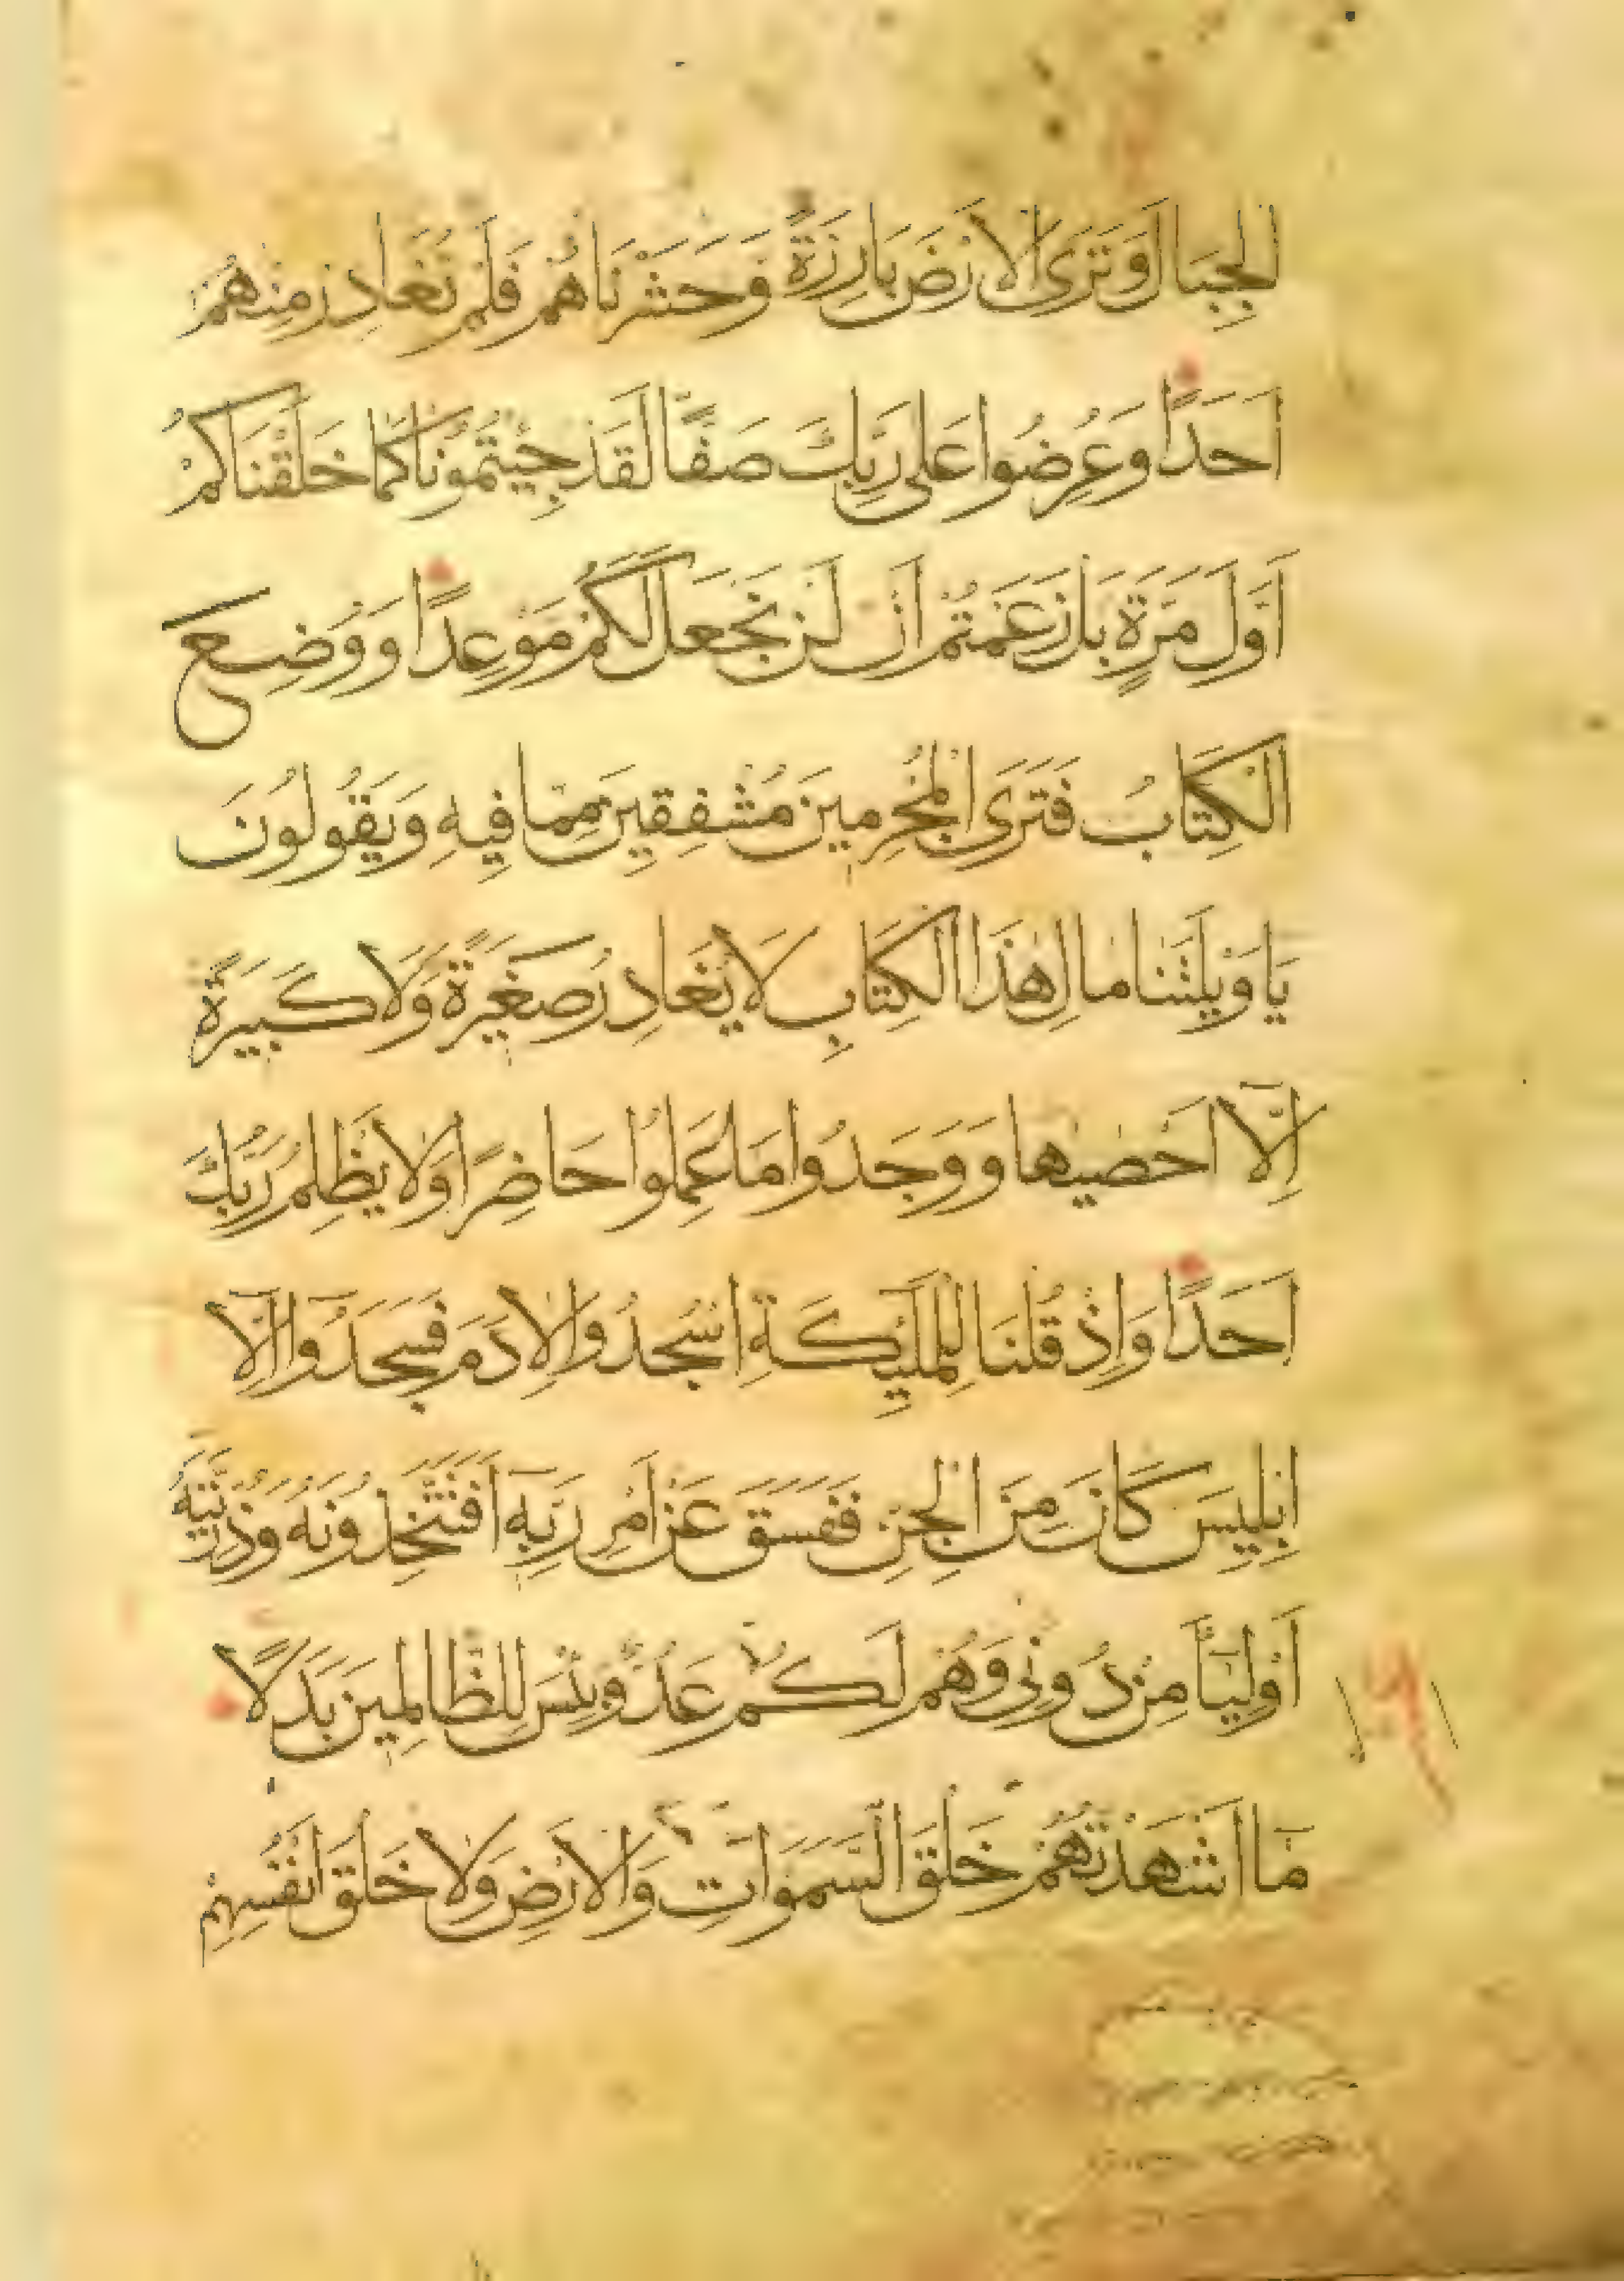 الْجِبَالَ وَتَرَى الْاَرْضَ بَارِزَةً وَحَشَرْنَاهُمْ فَلَمْ نُغَادِرْ مِنْهُمْ
اَحَدًا وَعُرِضُوا عَلٰى رَبِّكَ صَفًّا لَقَدْ جِئْتُمُونَا كَمَا خَلَقْنَاكُمْ
اَوَّلَ مَرَّةٍ بَلْ زَعَمْتُمْ اَنْ لَنْ نَجْعَلَ لَكُمْ مَوْعِدًا وَوُضِعَ
الْكِتَابُ فَتَرَى الْمُجْرِمِينَ مُشْفِقِينَ مِمَّا فِيهِ وَيَقُولُونَ
يَا وَيْلَتَنَا مَا لِ هٰذَا الْكِتَابِ لَا يُغَادِرُ صَغِيرَةً وَلَا كَبِيرَةً
اِلَّا اَحْصٰيهَا وَوَجَدُوا مَا عَمِلُوا حَاضِرًا وَلَا يَظْلِمُ رَبُّكَ
اَحَدًا وَاِذْ قُلْنَا لِلْمَلٰٓئِكَةِ اسْجُدُوا لِاٰدَمَ فَسَجَدُٓوا اِلَّٓا
اِبْلِيسَ كَانَ مِنَ الْجِنِّ فَفَسَقَ عَنْ اَمْرِ رَبِّهٖٓ اَفَتَتَّخِذُونَهُ وَذُرِّيَّتَهُٓ
اَوْلِيَٓاءَ مِنْ دُونِى وَهُمْ لَكُمْ عَدُوٌّ بِئْسَ لِلظَّالِمِينَ بَدَلًا
مَٓا اَشْهَدْتُهُمْ خَلْقَ السَّمٰوَاتِ وَالْاَرْضِ وَلَا خَلْقَ اَنْفُسِهِمْ